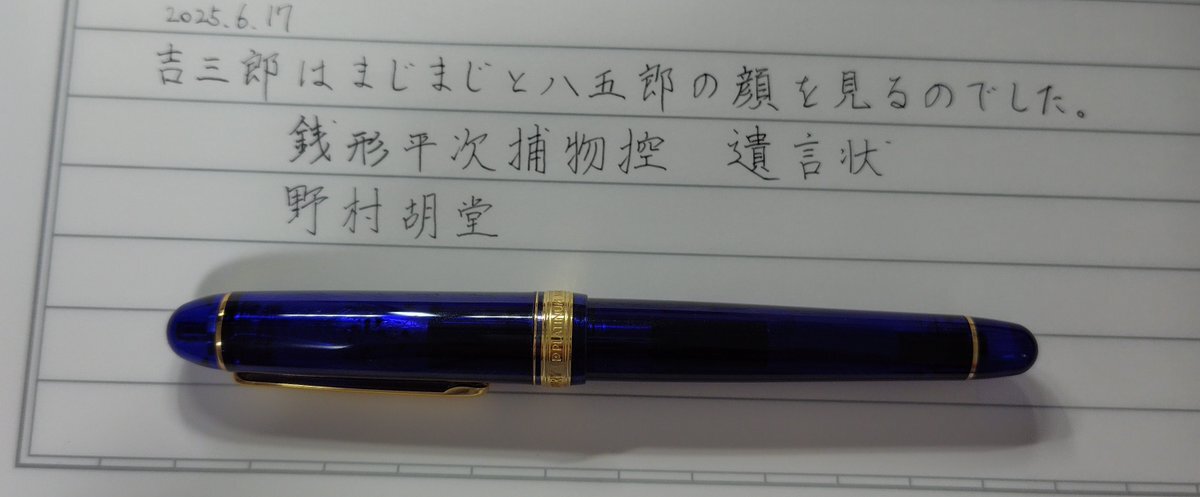 2025.6.17
吉三郎はまじまじと八五郎の顔を見るのでした。
銭形平次捕物控　遺言状
野村胡堂
PLATINUM